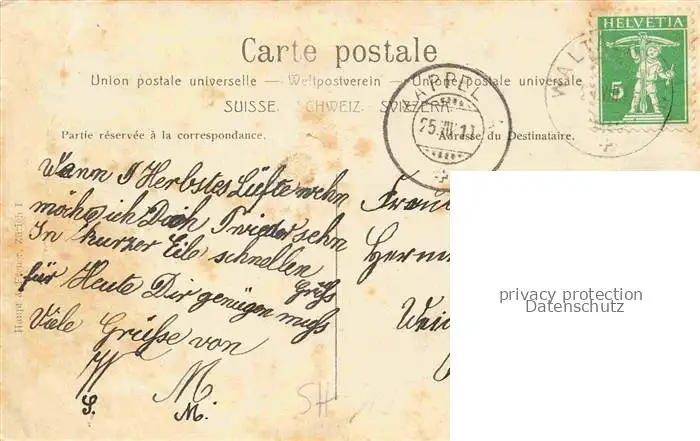 HELVETIA
5
WALT
Carte postale
Union postale universelle — Weltpostverein — Unione postale universale
SUISSE. SCHWEIZ. SVIZZERA.
APPEL
25.VII.11
Partie réservée à la correspondance.
Adresse du Destinataire.
Wann d Herbstes Lüfte wehn
möcht ich Dich wieder sehn
In kurzer Eile schnellen
Gruss
für Heute Dir genügen muss
Viele Grüsse von
W M
S. M.
SH
Zürich I
privacy protection
Datenschutz